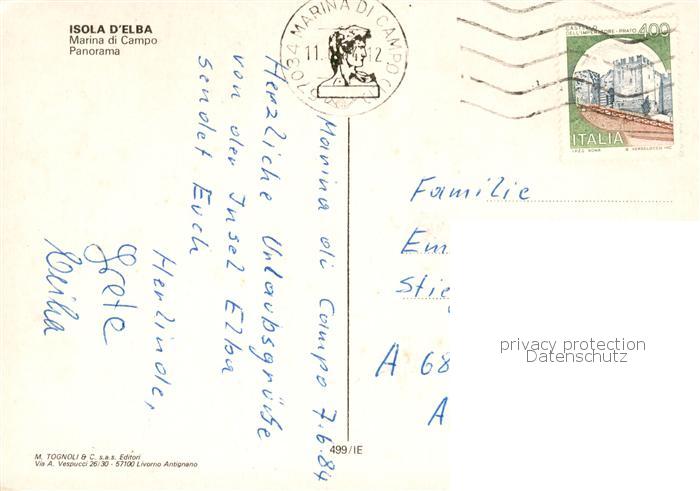 ISOLA D'ELBA
Marina di Campo
Panorama
57034 MARINA DI CAMPO
11. 12
CASTELLO
DELL'IMPERATORE - PRATO 400
ITALIA
I.P.Z.S. ROMA
Marina di Campo 7.6.84
Herzliche Urlaubsgrüße
von der Insel Elba
sendet Euch
Herlinde,
Grete
Familie
Em
Stie
A 68
A
privacy protection
Datenschutz
499/IE
M. TOGNOLI & C. s.a.s. Editori
Via A. Vespucci 26/30 - 57100 Livorno Antignano